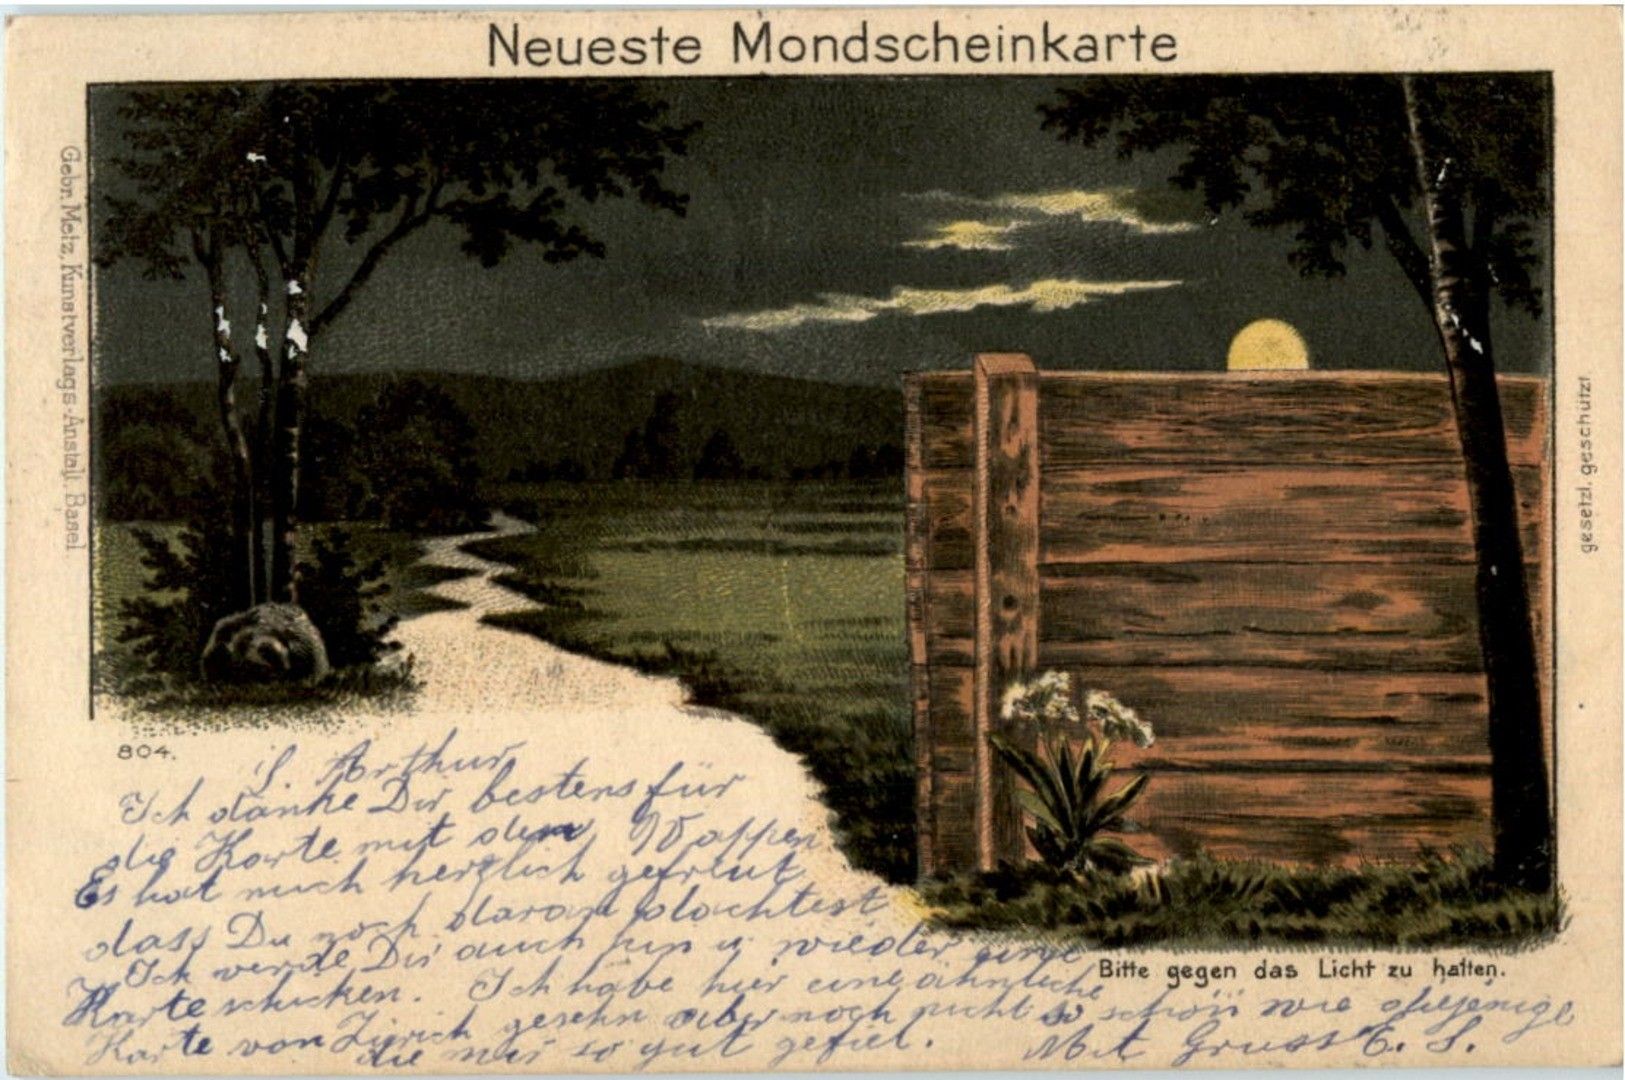 Neueste Mondscheinkarte
Gebr. Metz, Kunstverlags-Anstalt, Basel.
gesetzl. geschützt
804.
Bitte gegen das Licht zu halten.
Arthur
Ich danke Dir bestens für
die Karte mit dem Wappen
Es hat mich herzlich gefreut
dass Du noch daran dachtest
Ich werde Dir auch hin u. wieder eine
Karte schicken. Ich habe hier eine ähnliche
Karte von Zürich gesehn aber noch nicht so schön wie diejenige
die mir so gut gefiel. Mit Gruss E. S.